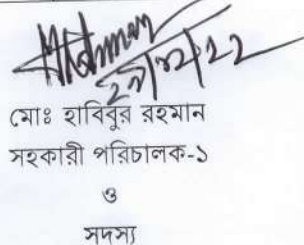 ২৭/১২/২২
মোঃ হাবিবুর রহমান
সহকারী পরিচালক-১
ও
সদস্য